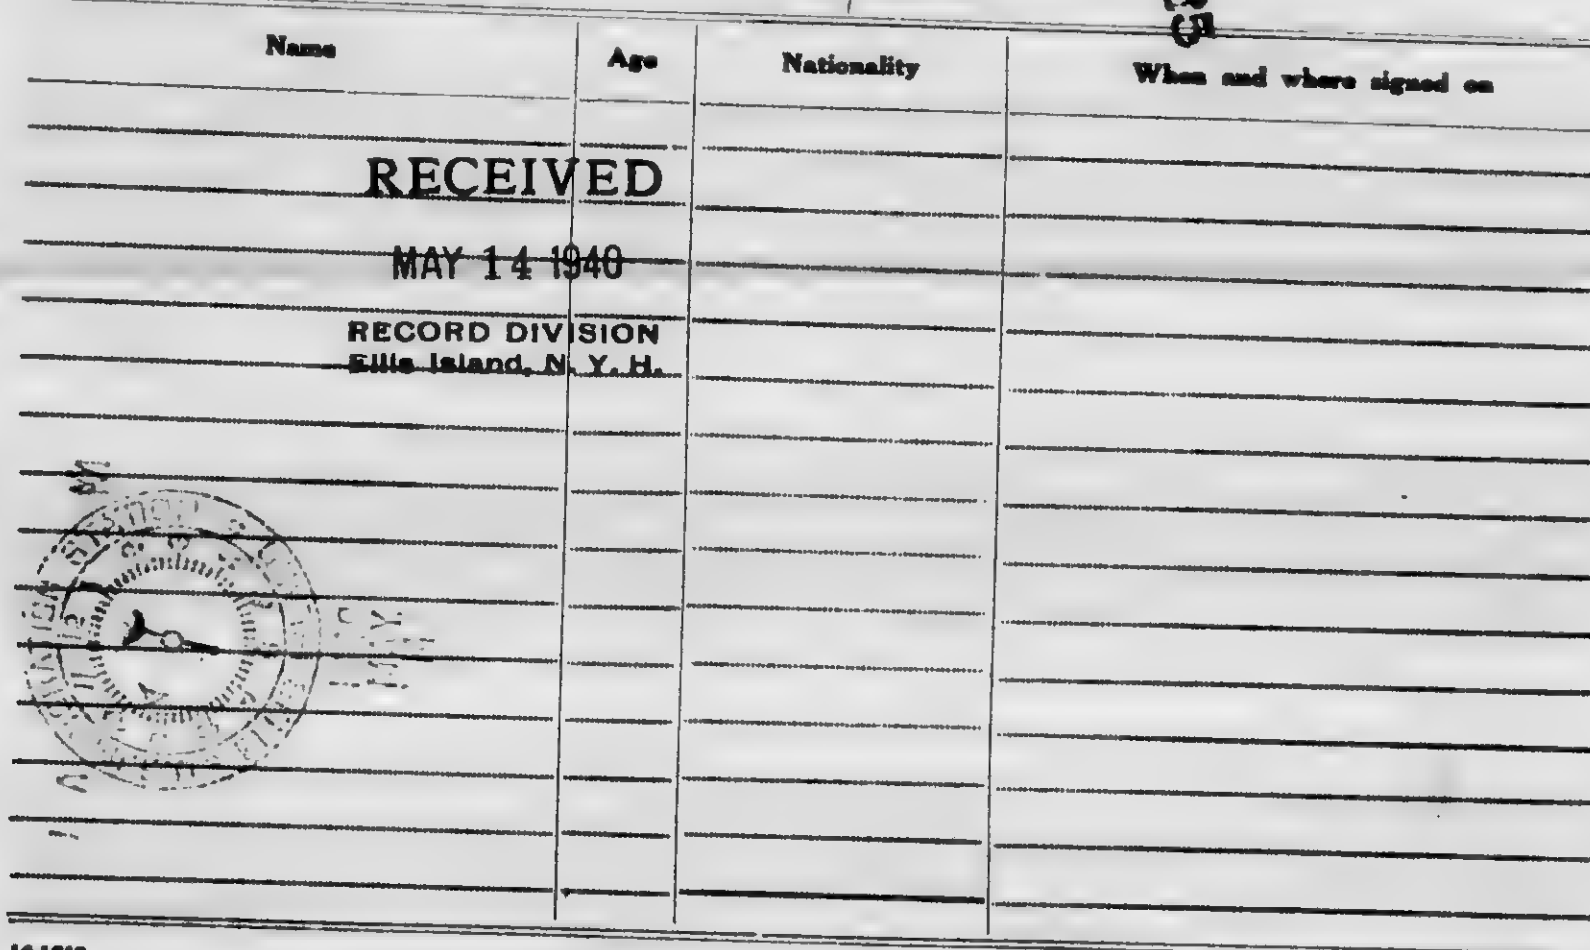 Name Age Nationality When and where signed on
RECEIVED
MAY 14 1940
RECORD DIVISION
Ellis Island, N. Y. H.